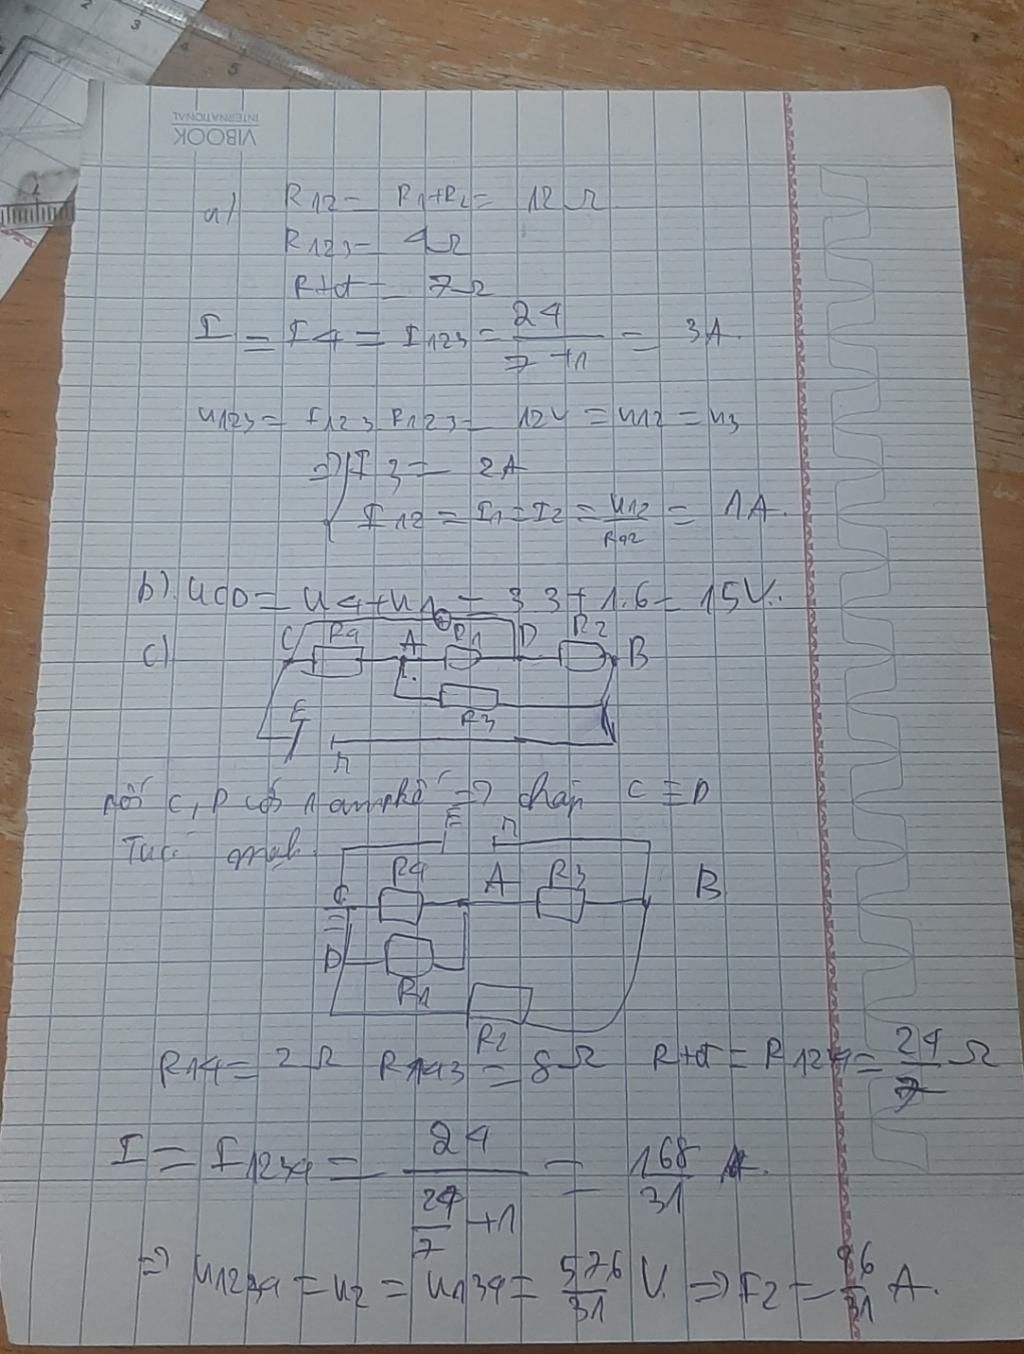 VIBOOK
INTERNATIONAL
a) R12 = R1+R2 = 12Ω
R123 = 4Ω
Rtđ = 7Ω
I = I4 = I123 = 24/(7+1) = 3A.
U123 = I123 R123 = 12V = U12 = U3
=> I3 = 2A
I12 = I1 = I2 = U12/R12 = 1A.
b) UCD = U4+U1 = 3.3+1.6 = 15V.
c) C R4 A R1 D R2 B
R3
E
r
nối C, D với ampe kế => chập C ≡ D
E r
R4 A R3 B
C
≡
D
R1
R2
R14 = 2Ω R143 = 8Ω Rtđ = R1234 = 24/7 Ω
I = I1234 = 24/(24/7+1) = 168/31 A.
=> U1234 = U2 = U134 = 576/31 V. => I2 = 96/31 A.